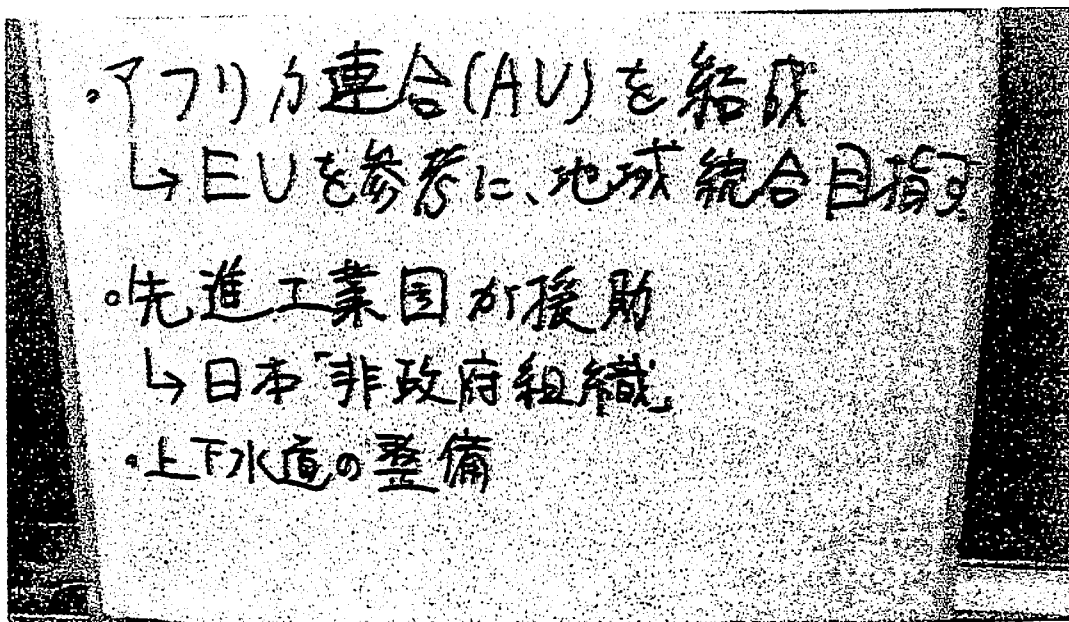 ・アフリカ連合(AU)を結成
↳EUを参考に、地域統合目指す
・先進工業国が援助
↳日本「非政府組織」
・上下水道の整備